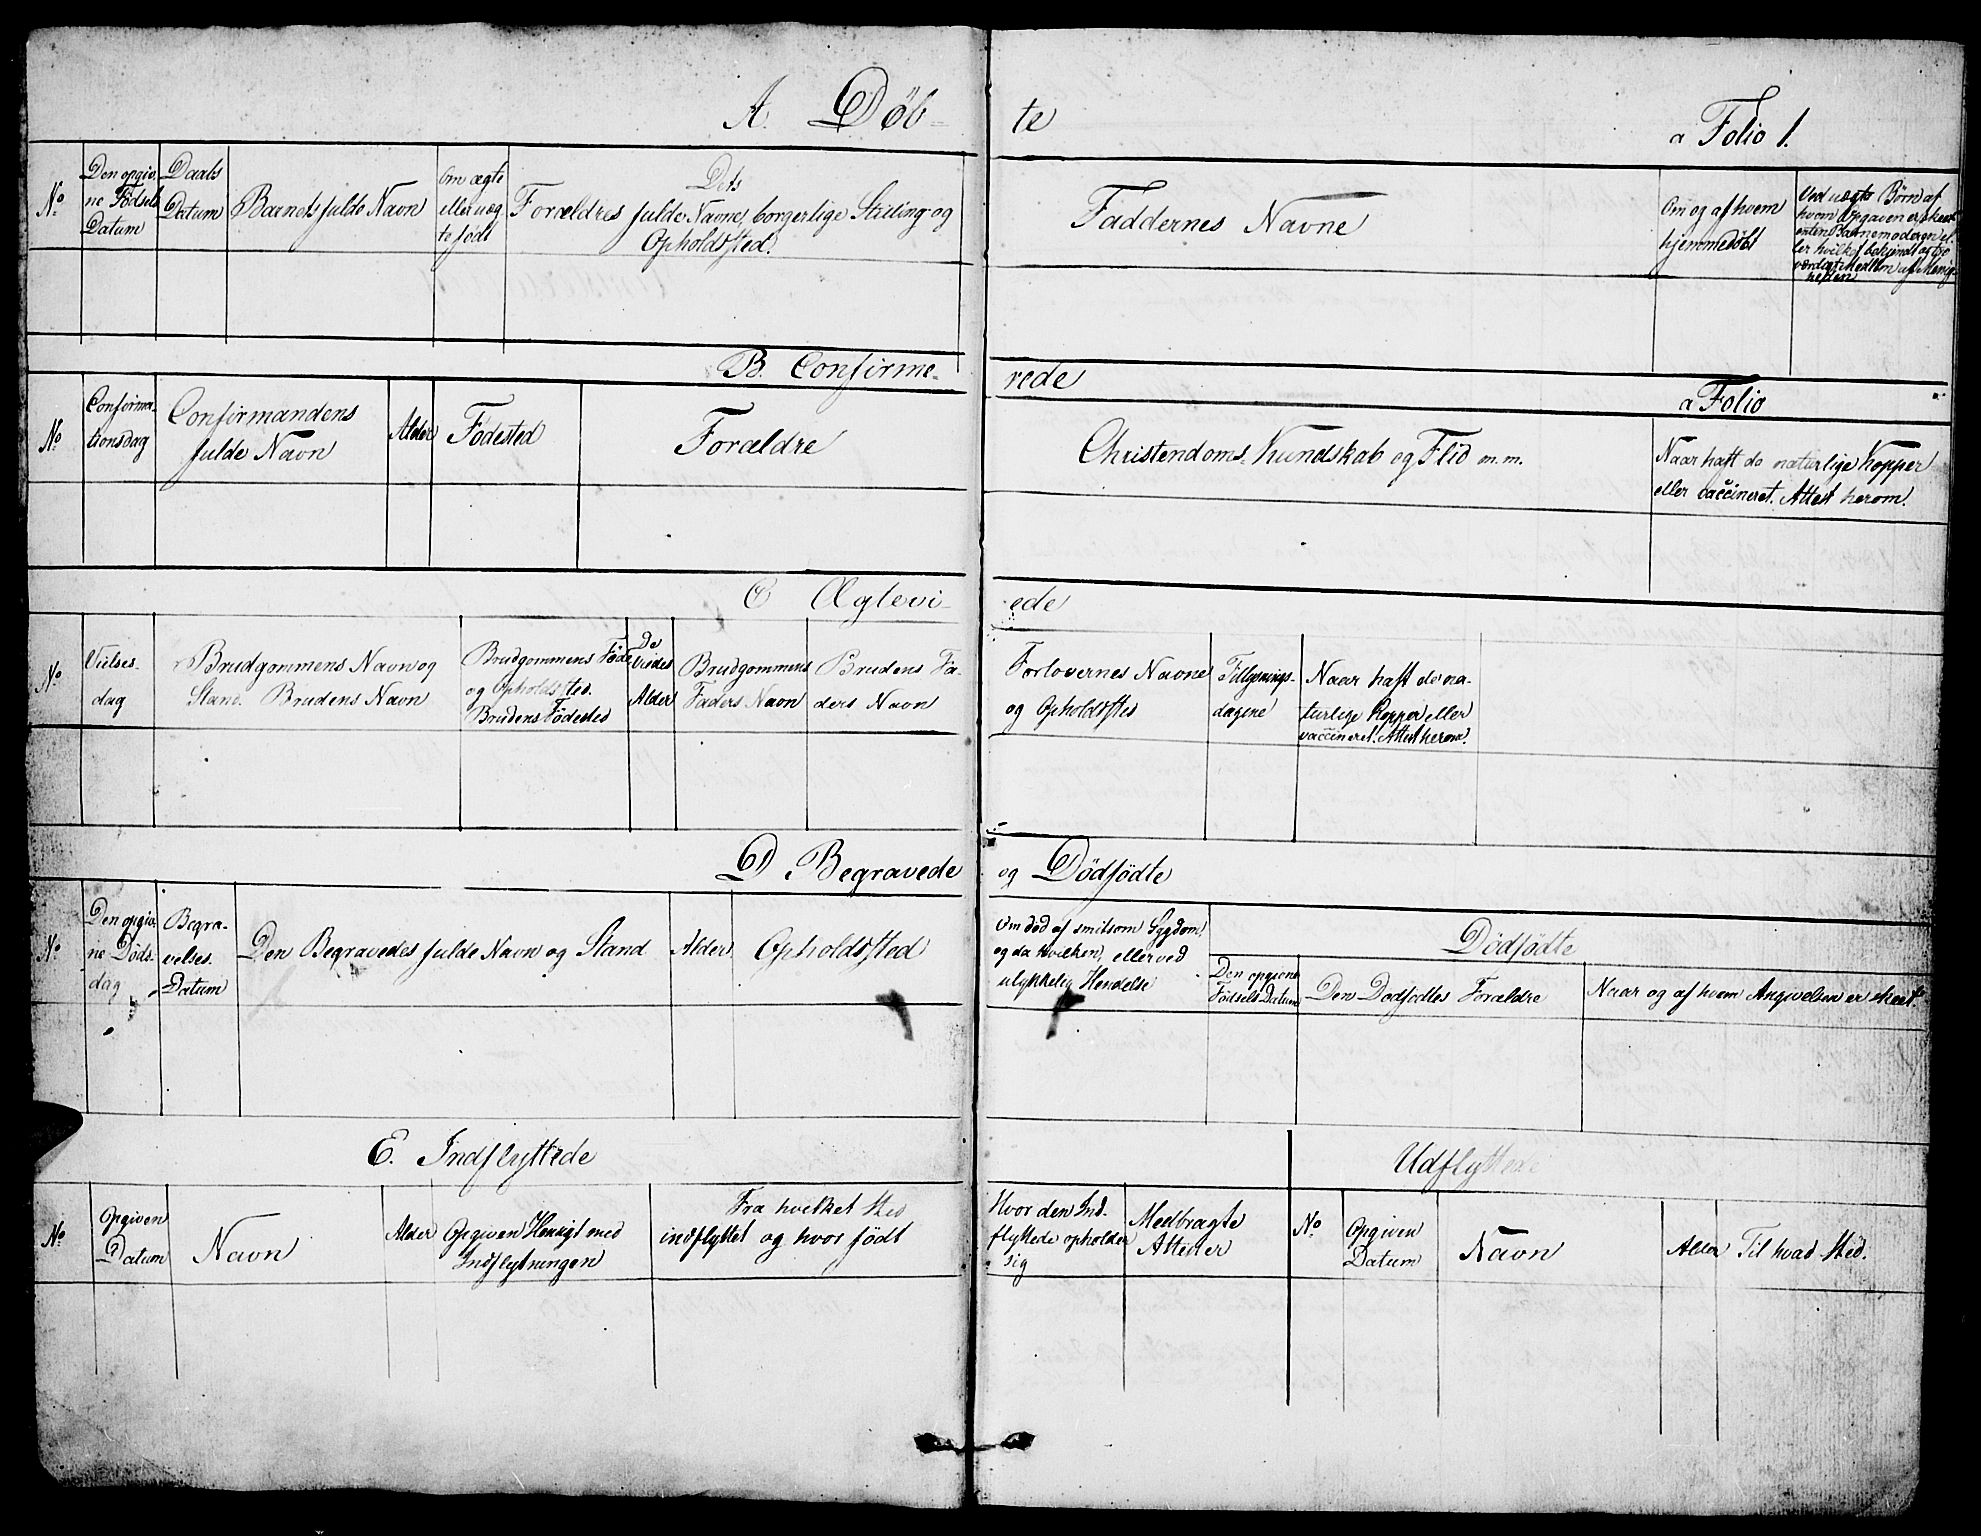 A. Døb-te
a Folio 1.
No
Den opgiv-
ne Fødsels
Datum
Daabs
Datum
Barnets fulde Navn
Om ægte
eller uæg-
te født
Dets
Forældres fulde Navne, borgerlige Stilling og
Opholdssted.
Faddernes Navne
Om og af hvem
hjemmedøbt
Ved uægte Børn af
hvem Opgaven er skeet
enten Barnemoderen el-
ler hvilket bekjendt og tro-
værdigt Medlem af Menig-
heden
B. Confirme-rede
a Folio
No
Confirma-
tionsdag
Confirmandens
fulde Navn
Alder
Fødested
Forældre
Christendoms Kundskab og Flid m.m.
Naar haft de naturlige Kopper
eller vaccineret. Attest herom.
C Ægtevi-ede
No
Vielses-
dag
Brudgommens Navn og
Stand. Brudens Navn
Brudgommens Føde
og Opholdssted.
Brudens Fødested
De
Viedes
Alder
Brudgommens
Faders Navn
Brudens Fa-
ders Navn
Forlovernes Navne
og Opholdssted
Tillysnings-
dagene
Naar haft de na-
turlige Kopper eller
vaccineret. Attest herom.
D. Begravede og Dødfødte
No
Den opgiv-
ne Døds-
dag
Begra-
velses-
Datum
Den Begravedes fulde Navn og Stand
Alder
Opholdssted
Om død af smitsom Sygdom,
og da hvilken, eller ved
ulykkelig Hendelse
Dødfødte
Den opgivne
Fødsels Datum
Den Dødfødtes Forældre
Naar og af hvem Angivelsen er skeet.
E. Indflyttede
Udflyttede
No
Opgiven
Datum
Navn
Alder
Opgiven Hensigt med
Indflytningen
Fra hvilket Sted
indflyttet og hvor født
Hvor den Ind-
flyttede opholder
sig
Medbragte
Attester
No
Opgiven
Datum
Navn
Alder
Til hvad Sted.